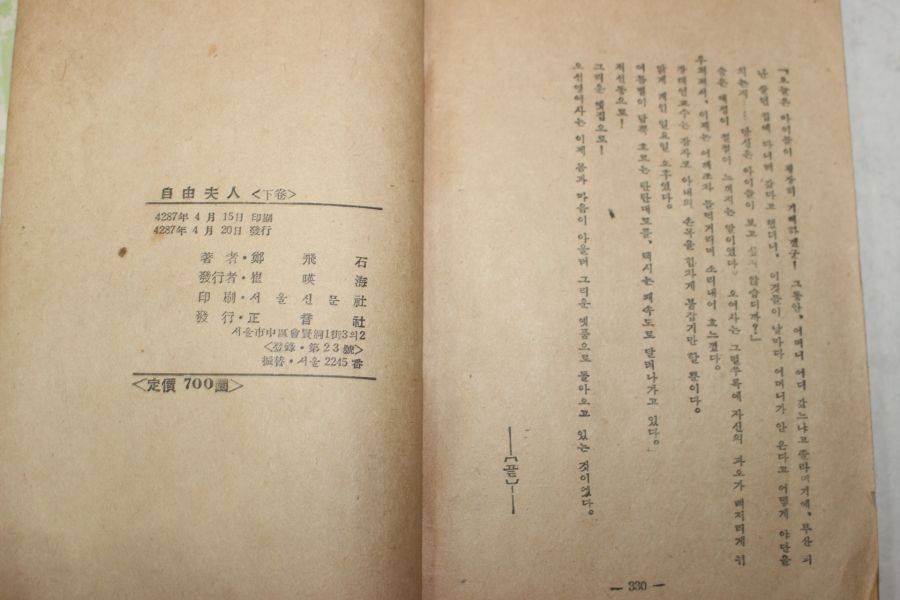 自由夫人〈下卷〉
4287年 4月 15日 印刷
4287年 4月 20日 發行
著者・鄭飛石
發行者・崔暎海
印刷・서울신문社
發行・正音社
서울市中區會賢洞1街3의2
〈登錄・第23號〉
振替・서울 2245番
〈定價 700圜〉
『오늘은 아이들이 굉장히 기뻐하겠군! 그동안, 어머니 어디 갔느냐고 졸라대기에, 부산 피
난 살던 집에 다니러 갔다고 했더니, 이것들이 날마다 어머니가 안 온다고 어떻게 야단을
치는지…… 당신은 아이들이 보고 싶지 않습디까?』
숨은 애정이 절절이 느껴지는 말이었다. 오여사는 그럴쑤록에 자신의 과오가 뼈저리게 뉘
우쳐져서, 이제는 어깨조차 들먹거리며 소리내어 흐느꼈다.
장태연교수는 잠자코 아내의 손목을 힘차게 붙잡기만 할 뿐이다.
맑게 개인 일요일 오후였다.
여름볕이 담뿍 흐르는 탄탄대로를, 택시는 쾌속도로 달려나가고 있다.
저선동으로!
그리운 옛집으로!
오선영여사는 이제 몸과 마음이 아울러 그리운 옛품으로 돌아오고 있는 것이었다.
——【끝】——
— 330 —